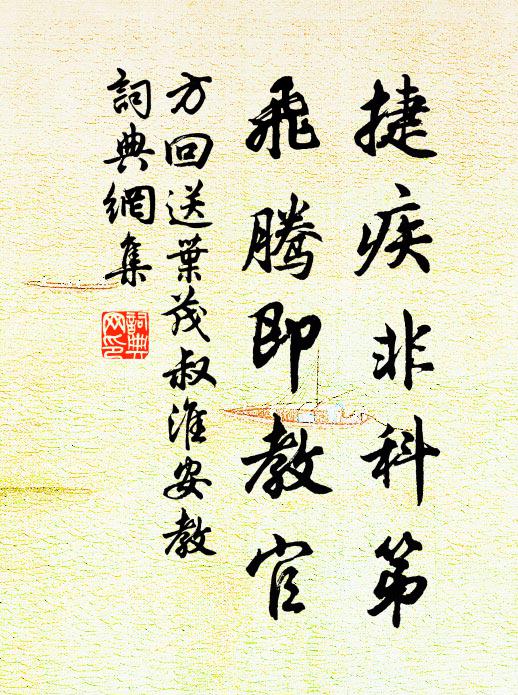 捷疾非科第
飛騰即教官
方回送葉茂叔淮安教
詞典網集
詞典
网印